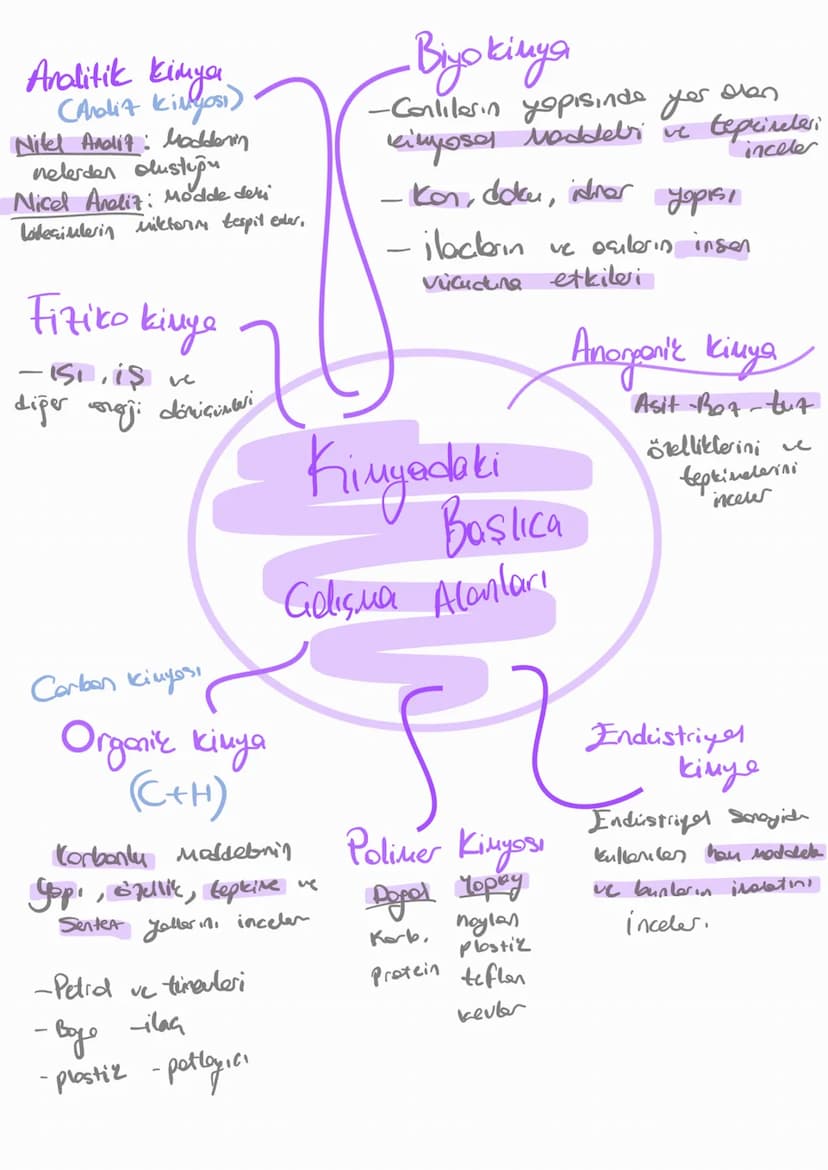 Analitik Kimya
(Analiz Kimyası)
Nitel Analiz: Maddenin
nelerden oluştuğu
Nicel Analiz: Maddedeki
bileşimlerin miktarını tespit eder.
Biyokimya
-Canlıların yapısında yer alan
kimyasal maddeleri ve tepkimeleri
inceler
- Kan, doku, idrar yapısı
- ilaçların ve aşıların insan
vücuduna etkileri
Fiziko kimya
- ISI, iş ve
diğer enerji dönüşümleri
Anorganik kimya
Asit-Baz-tuz
özelliklerini ve
tepkimelerini
inceler
Kimyadaki
Başlıca
Çalışma Alanları
Carbon kimyası
Organik kimya
(C+H)
Karbonlu maddelerin
Yapı, özellik, tepkime ve
Sentez yollarını inceler
-Petrol ve türevleri
- Boya -ilaç
- plastik - patlayıcı
Polimer Kimyası
Doğal Yapay
Karb. naylon
protein plastik
teflon
kevlar
Endüstriyel
kimya
Endüstriyel Sanayide
kullanılan ham maddeler
ve bunların imalatını
inceler.